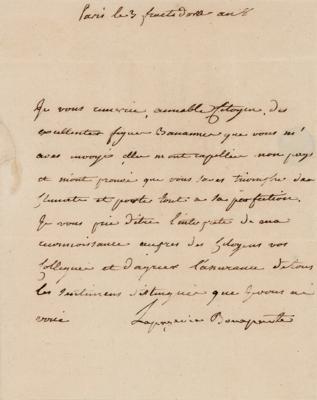 Paris le 3 fructidor an 8
Je vous remercie, aimable Citoyen, des
excellentes figues Bananes que vous m'
avez envoyé elle mont rapellée mon pays
et mont prouvé que vous savez triompher des
climats et porter tout a sa perfection.
Je vous prie d'être l'interprete de ma
reconnoissance aupres des Citoyens vos
Collegues et d'agreer l'assurance de tous
les sentimens distingués que je vous ai
voué Lapagerie Bonaparte